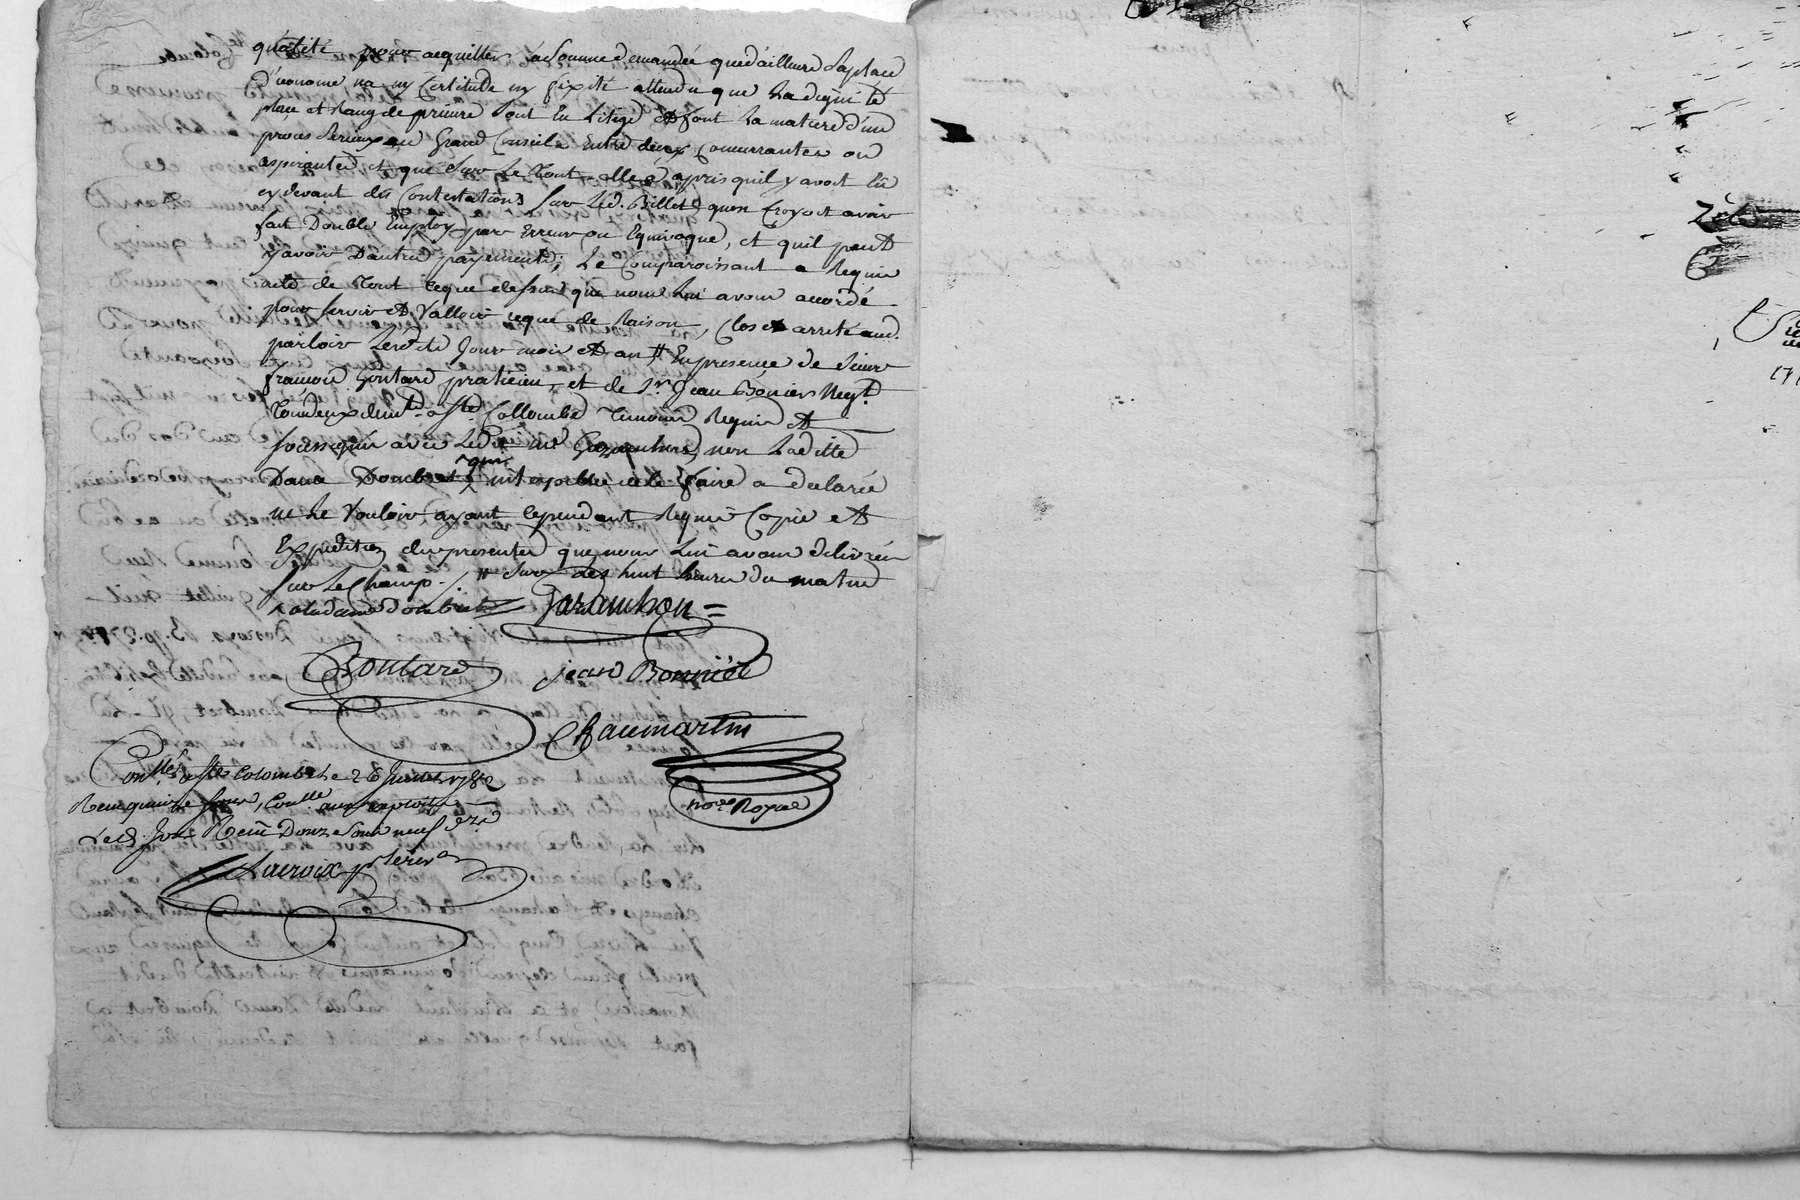 qualité pour acquitter la Somme demandée que d'ailleurs Sa place
D'econome na ny Certitude ny fixité attendu que La dignité
place et Rang de prieure Sont En Litige et font La matiere d'un
procés Serieux au Grand Conseil Entre deux Concurrantes ou
aspirantes et que Sur Le Tout elle a apris quil y avoit Eu
cy devant des Contestations Sur Led. Billet quon Croyoit avoir
fait Double Employ par Erreur ou Equivoque, et quil peut
y avoir Dautres payements; Le Comparoissant a Requis
acte de Tout ceque dessus que nous Lui avons accordé
pour Servir et Valloir ceque de Raison, Clos et arreté aud.
parloir Lesdits Jour mois et an # En presence de Sieur
francois Goutard praticien, et de Sr. Jean Bonier Negt.
Tous deux demts. a Ste Collombe Temoins Requis et
Soussignés avec Ledit Me Garambon, non Laditte
Dame Dombret qui interpellée de le faire a declaré
ne Le Vouloir, ayant cependant Requis Copie et
Expedition du presentes que nous Lui avons delivrée
Sur Le Champ. / # Sur Les huit heures du matin
a lad. dame Dombret Garambon =
Goutard jean Bonnier
Chaumartin
nore Royal
Conllé a Ste Colombe Le 26 Juillet 1782
Recu quinze Sous, Conllé aux exploits
Led. Jour Recu Douze Sous neuf drs.
Lacroix pr